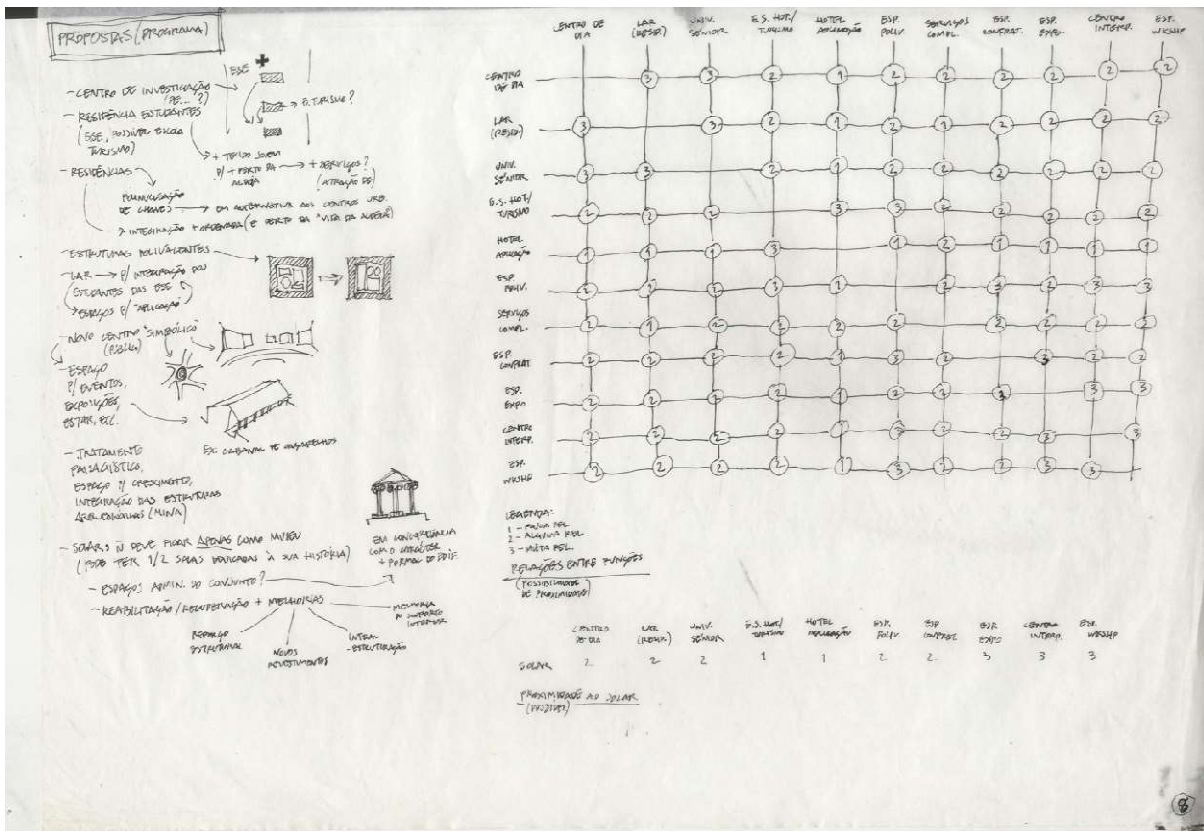 PROPOSTAS (PROGRAMA)
- CENTRO DE INVESTIGAÇÃO
(DE... ?)
ESE
- RESIDÊNCIA ESTUDANTES
(ESE, POSSÍVEL ESCOLA
TURISMO)
E. TURISMO?
→ + TECIDO JOVEM
P/ + PERTO DA
ALDEIA
→ + SERVIÇOS?
(ATRAÇÃO DE)
- RESIDÊNCIAS
→ EM ALTERNATIVA AOS CENTROS URB.
→ INTEGRAÇÃO + ORDENADA (E PERTO DA "VISTA DA ALDEIA")
- ESTRUTURAS POLIVALENTES
- LAR → P/ INTEGRAÇÃO DOS
ESTUDANTES DAS ESE
→ ESPAÇOS P/ "APLICAÇÃO"
- NOVO CENTRO "SIMBÓLICO"
(PÚBLICO)
- ESPAÇO
P/ EVENTOS,
EXPOSIÇÕES,
ESTAR, ETC.
- TRATAMENTO
PAISAGÍSTICO,
ESPAÇO P/ CRESCIMENTO,
INTEGRAÇÃO DAS ESTRUTURAS
(MINA)
- SOLAR: Ñ DEVE FICAR APENAS COMO MUSEU
(PODE TER 1/2 SALAS DEDICADAS À SUA HISTÓRIA)
EM CONCORDÂNCIA
COM O CARÁCTER
+ FORMAL DO EDIF.
- ESPAÇOS ADMIN. DO CONJUNTO?
- REABILITAÇÃO/RECUPERAÇÃO + MELHORIAS
REFORÇO
ESTRUTURAL
NOVOS
REVESTIMENTOS
INFRA-
-ESTRUTURAÇÃO
MELHORIA
CONFORTO
INTERIOR
CENTRO DE DIA LAR (RESID.) UNIV. SÉNIOR E.S. HOT./TURISMO HOTEL APLICAÇÃO ESP. POLIV. SERVIÇOS COMPL. ESP. CONFRAT. ESP. EXPO. CENTRO INTERP. ESP. WKSHP
CENTRO DE DIA 3 3 2 1 2 2 2 2 2 2
LAR (RESID.) 3 3 2 1 2 1 2 2 2 2
UNIV. SÉNIOR 3 3 2 1 2 2 2 2 2 2
E.S. HOT./TURISMO 2 2 2 3 3 2 2 2 2 2
HOTEL APLICAÇÃO 1 1 1 3 1 2 1 1 1 1
ESP. POLIV. 2 2 2 3 1 2 3 2 3 3
SERVIÇOS COMPL. 2 1 2 2 2 2 2 2 2 2
ESP. CONFRAT. 2 2 2 2 1 3 2 3 2 2
ESP. EXPO 2 2 2 2 1 2 2 3 3 3
CENTRO INTERP. 2 2 2 2 1 3 2 2 3 3
ESP. WKSHP 2 2 2 2 1 3 2 2 3 3
LEGENDA:
1 - POUCA REL.
2 - ALGUMA REL.
3 - MUITA REL.
RELAÇÕES ENTRE FUNÇÕES
(POSSIBILIDADE
DE PROXIMIDADE)
CENTRO DE DIA LAR (RESID.) UNIV. SÉNIOR E.S. HOT./TURISMO HOTEL APLICAÇÃO ESP. POLIV. ESP. CONFRAT. ESP. EXPO CENTRO INTERP. ESP. WKSHP
SOLAR 2 2 2 1 1 2 2 3 3 3
PROXIMIDADE AO SOLAR
8